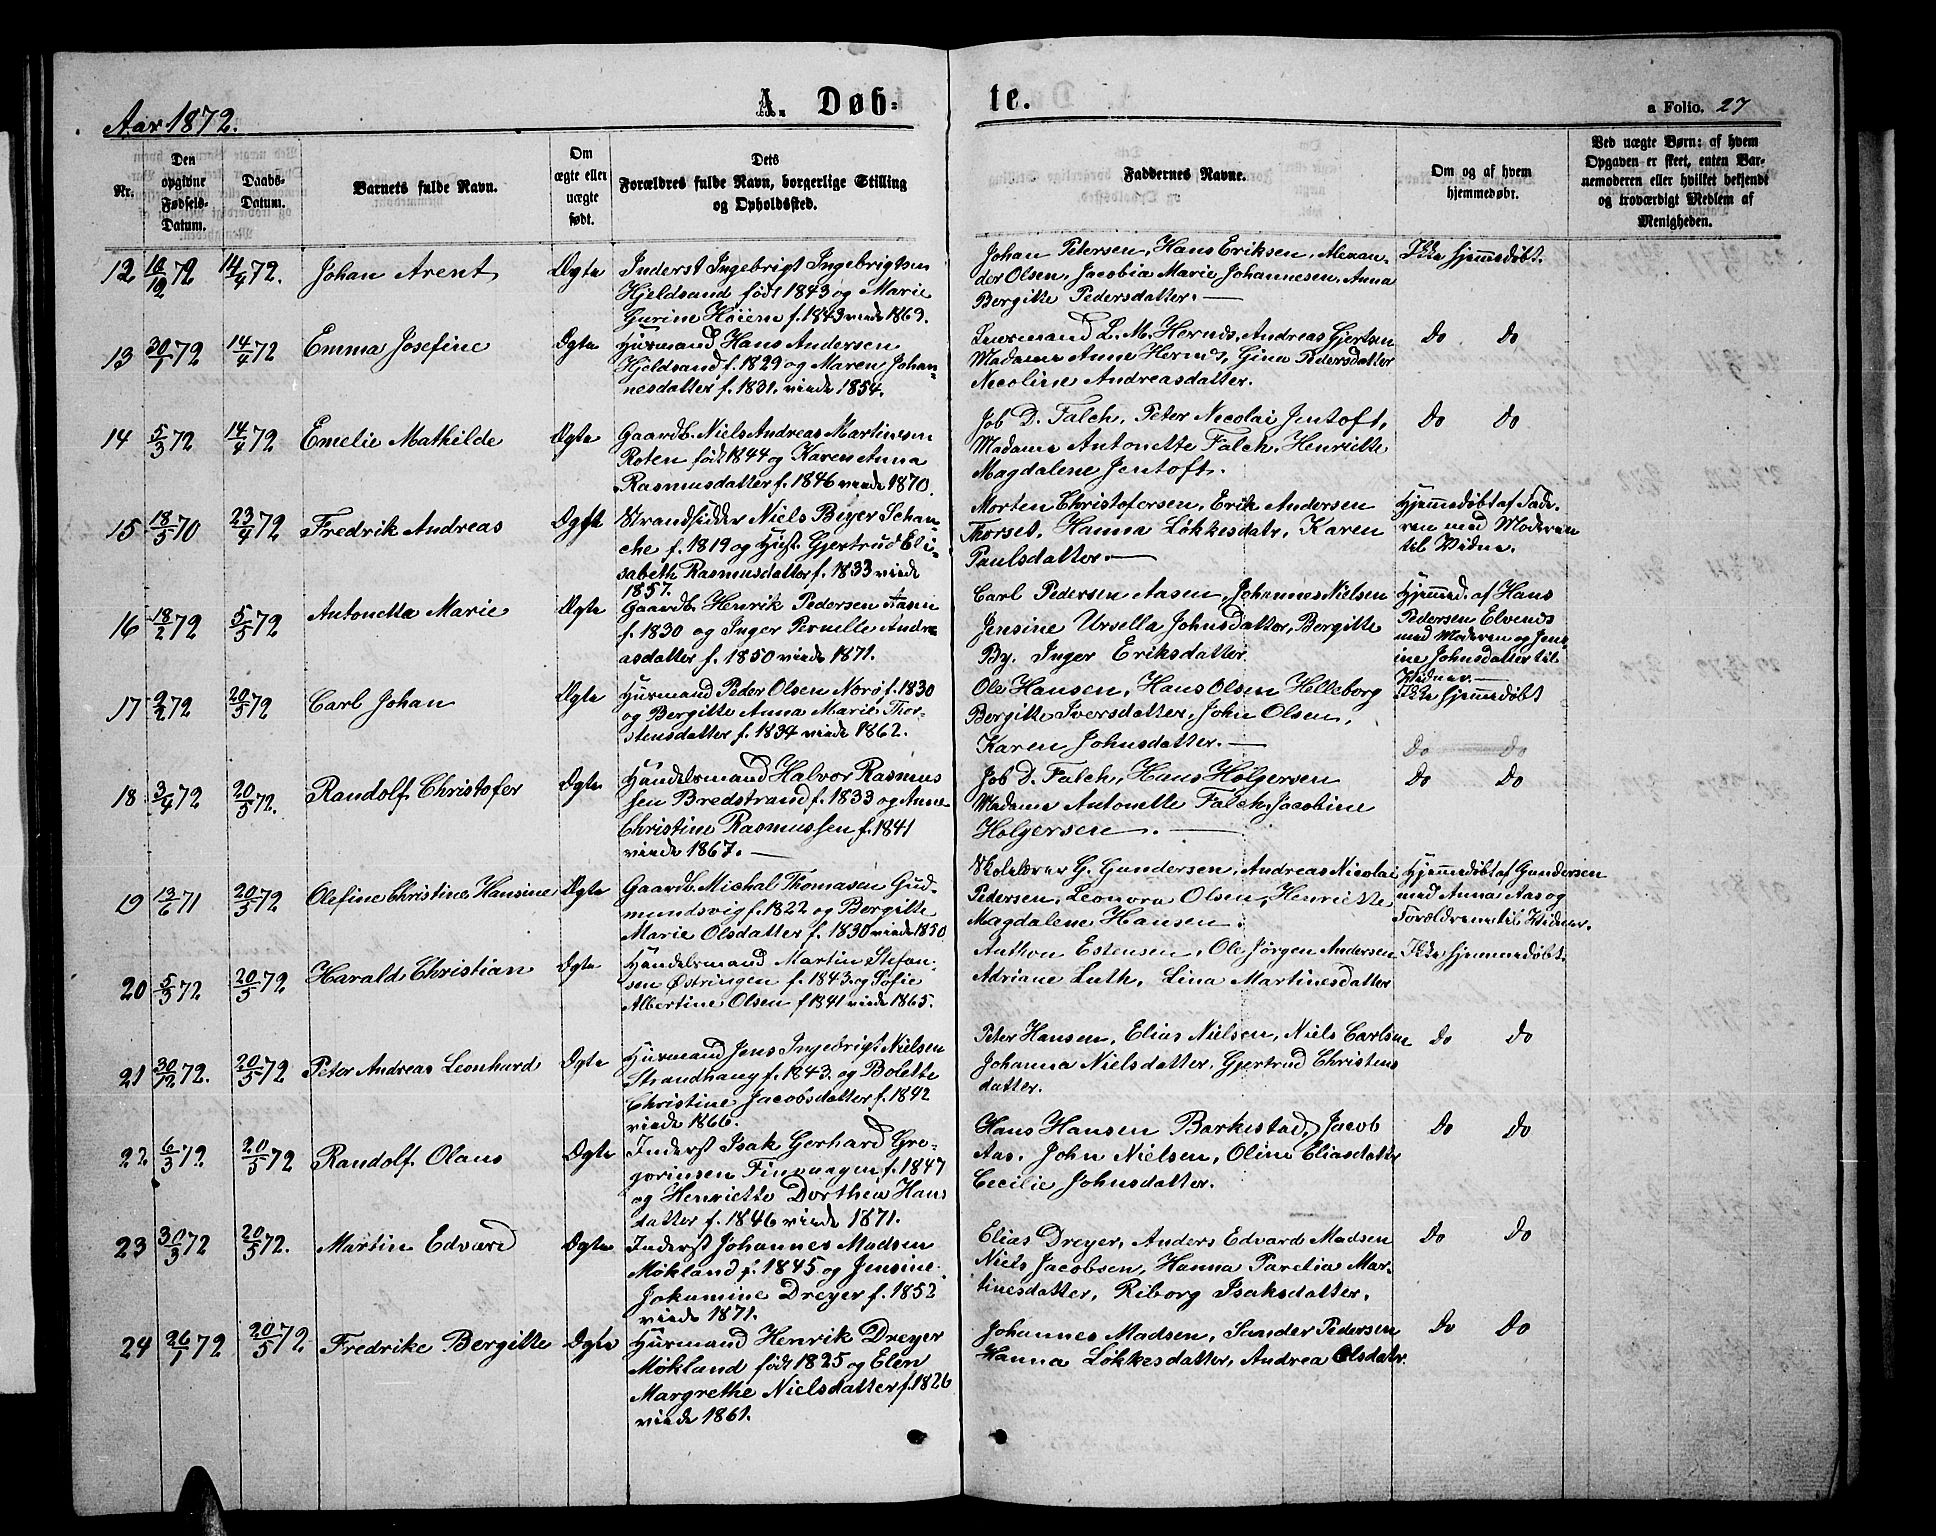 Aar 1872.
A. Døb-
te.
a Folio. 27
Nr.
Den opgivne Fødsels-Datum.
Daabs-Datum.
Barnets fulde Navn.
Om ægte eller uægte født.
Dets
Forældres fulde Navn, borgerlige Stilling
og Opholdssted.
Faddernes Navne.
Om og af hvem
hjemmedøbt.
Ved uægte Børn: af hvem
Opgaven er skeet, enten Bar-
nemoderen eller hvilket bekjendt
og troværdigt Medlem af
Menigheden.
12 10/12 72 14/4 72. Johan Arent Ægte
Inderst Ingebrigt Ingebrigtsen
Hjeldsand født 1843 og Marie
Gurine Høiem f. 1843 viede 1863.
Johan Petersen, Hans Eriksen, Alexan-
der Olsen, Jacobia Marie Johannesen, Anna
Bergitte Pedersdatter.
Ikke hjemmedøbt.
13 30/1 72 14/4 72 Emma Josefine Ægte
Husmand Hans Andersen
Hjeldsand f. 1829 og Maren Johan-
nesdatter f. 1831. viede 1854.
L. M. Hernes, Andreas Gjertsen
Madame Anne Hernes, Gina Pedersdatter
Nicoline Andreasdatter.
Do Do
14 5/3 72 14/4 72 Emelie Mathilde Ægte
Gaardb. Niels Andreas Martinesen
Roten født 1844 og Karen Anna
Rasmusdatter f. 1846 viede 1870.
Job D. Falch, Peter Nicolai Jentoft,
Madame Antonette Falch, Henriette
Magdalene Jentoft.
Do Do
15 18/5 70 23/4 72 Fredrik Andreas Ægte
Strandsidder Niels Beyer Schan-
che f. 1819 og Hust. Gjertrud Eli-
sabeth Rasmusdatter f. 1833 viede
1857.
Morten Christofersen, Erik Andersen
Thorset, Hanna Løkkesdatr, Karen
Paulsdatter.
Hjemmedøbt af Fade-
ren med Moderen
til Vidne.
16 18/2 72 5/5 72 Antonetta Marie Ægte
Gaardb. Henrik Pedersen Aasen
f. 1830 og Inger Pernelle Andre-
asdatter f. 1850 viede 1871.
Carl Pedersen Aasen, Johannes Nielsen
Jensine Ursella Johnsdatter, Bergitte
By. Inger Eriksdatter
Hjemmed. af Hans
Pedersen Elvenes
med Moderen og Jens-
ine Johnsdatter til
Vidner.
17 9/2 72 20/5 72 Carl Johan Ægte
Husmand Peder Olsen Norø f. 1830
og Bergitte Anna Marie Thor-
stensdatter f. 1834 viede 1862.
Ole Hansen, Hans Olsen Helleborg
Bergitte Iversdatter, John Olsen,
Karen Johnsdatter.
Ikke hjemmedøbt
Do Do
18 3/4 72 20/5 72. Randolf Christofer Ægte
Handelsmand Halvor Rasmus
sen Bredstrand f. 1833 og Anne
Christine Rasmussen f. 1841
viede 1867.
Job D. Falch, Hans Holgersen
Madame Antonette Falch, Jacobine
Holgersen.
Do Do
19 13/6 71 20/5 72 Olefine Christine Hansine Ægte
Gaardb. Michal Thomasen Gud-
mundsvig f. 1822 og Bergitte
Marie Olsdatter f. 1830 viede 1850
Skolelærer G. Gundersen, Andreas Nicolai
Pedersen, Leonora Olsen, Henriette
Magdalene Hansen.
Hjemmedøbt af Gundersen
med Anna Aas og
Forældrene til Vidner.
20 5/3 72 20/5 72 Harald Christian Ægte
Handelsmand Martin Stefan-
sen Østringen f. 1843. og Sofie
Albertine Olsen f 1841 viede 1865.
Anthon Estensen, Ole Jørgen Andersen
Adriane Luth, Lina Martinesdatter
Ikke hjemmedøbt.
21 30/12 72. 20/5 72 Peter Andreas Leonhard Ægte
Husmand Jens Ingebrigt Nielsen
Strandhaug f. 1843. og Bolette
Christine Jacobsdatter f. 1842
viede 1866.
Peter Hansen, Elias Nielsen, Niels Carlsen
Johanna Nielsdatter, Gjertrud Christens
datter.
Do Do
22 6/3 72 20/5 72 Randolf Olaus Ægte
Inderst Isak Gerhard Gre-
gorinsen Finvaagen f. 1847
og Henriette Dorthea Hans
datter f. 1846 viede 1871.
Hans Hansen Barkestad, Jacob
Aas. John Nielsen, Oline Eliasdatter
Cecilie Johnsdatter.
Do Do
23 30/3 72 20/5 72. Martin Edvard Ægte
Inderst Johannes Madsen
Møkland f. 1845 og Jensine
Johanine Dreyer f. 1852
viede 1871.
Elias Dreyer, Anders Edvard Madsen
Niels Jacobsen, Hanna Parelia Mar-
tinesdatter, Riborg Isaksdatter.
Do Do
24 26/1 72 20/5 72 Fredrike Bergitte Ægte
Husmand Henrik Dreyer
Møkland født 1825 og Elen
Margrethe Nielsdatter f. 1826
viede 1861.
Johannes Madsen, Sander Pedersen
Hanna Løkkesdatter, Andrea Olsdatr.
Do Do